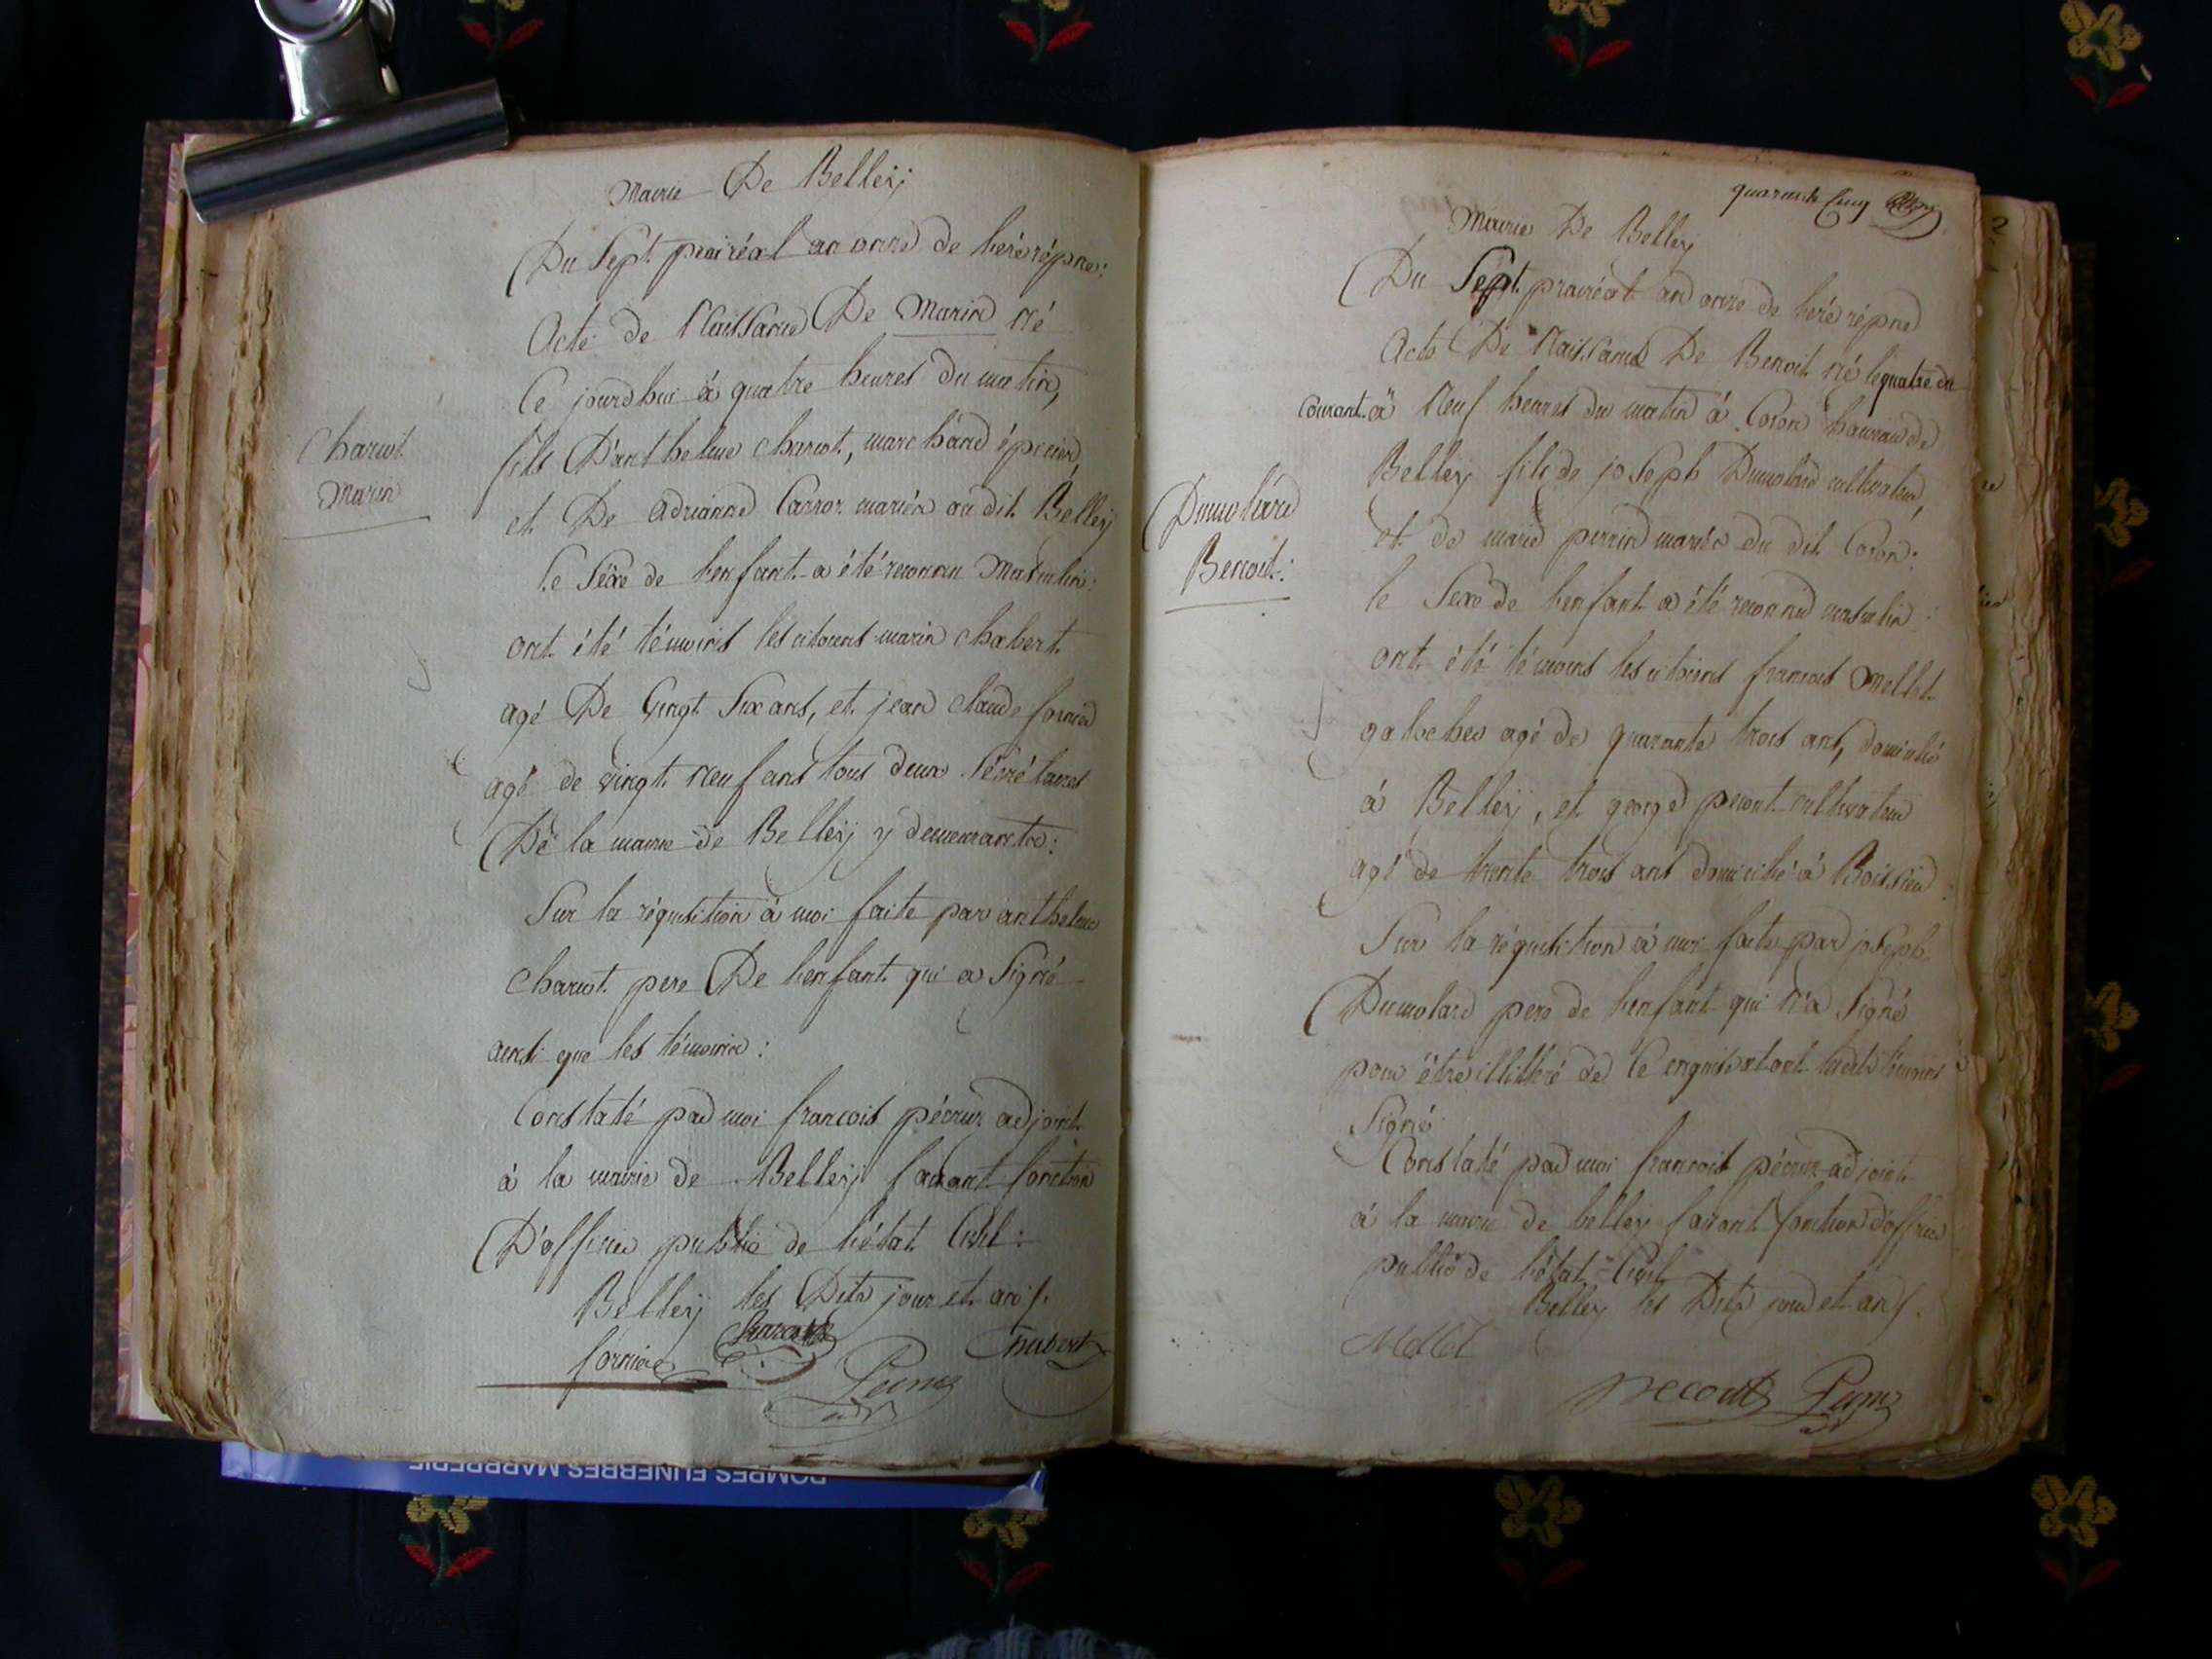 Mairie De Belleÿ
Du Sept prairéal an onze de l'erérépne:
Acte de Naissance De Marin né
Ce jourdhui à quatre heures du matin,
Chariot
Marin
fils D'anthelme chariot, marchand épicier,
et De adrianne Carror mariés au dit Belleÿ
le Séxe de l'enfant a été reconnu Masculin:
ont été témoins les citoiens marin chabert
agé De Vingt Six ans, et jean claude fornier
agé de vingt Neuf ans tous deux Sécrétaires
De la mairie de Belleÿ y demeurants:
Sur la réquisition à moi faite par anthelme
chariot pere De l'enfant qui a Signé
ainsi que les témoins:
Constaté par moi francois adjoint
à la mairie de Belleÿ faisant fonction
D'officier public de l'état Civil:
Belleÿ les Dits jour et an
fornier
Chabert
quarante Cinq
Mairie De Belleÿ
Du Sept prairéal an onze de l'erérépne
Acte De Naissance De Benoit né le quatre du
Courant à Neuf heures du matin à Coron hameau de
Belleÿ fils de joseph Dumolard cultivateur,
Dumolard
Benoit:
et de marie perrin mariés du dit Coron:
le Sexe de l'enfant a été reconnu masculin:
ont été témoins les citoiens francois Mellet
galocher agé de quarante trois ans, domicilié
à Belleÿ, et george pecout cultivateur
agé de trente trois ans domicilié à Boissieu
Sur la réquisition à moi faite par joseph
Dumolard pere de l'enfant qui n'a Signé
pour être illitéré de Ce enquis et ont lesdits témoins
Signé
Constaté par moi francois adjoint
à la mairie de belleÿ faisant fonction d'officier
public de l'état-Civil
Belleÿ les Dits jour et an
Mellet
pecout
POMPES FUNEBRES MARBRERIE